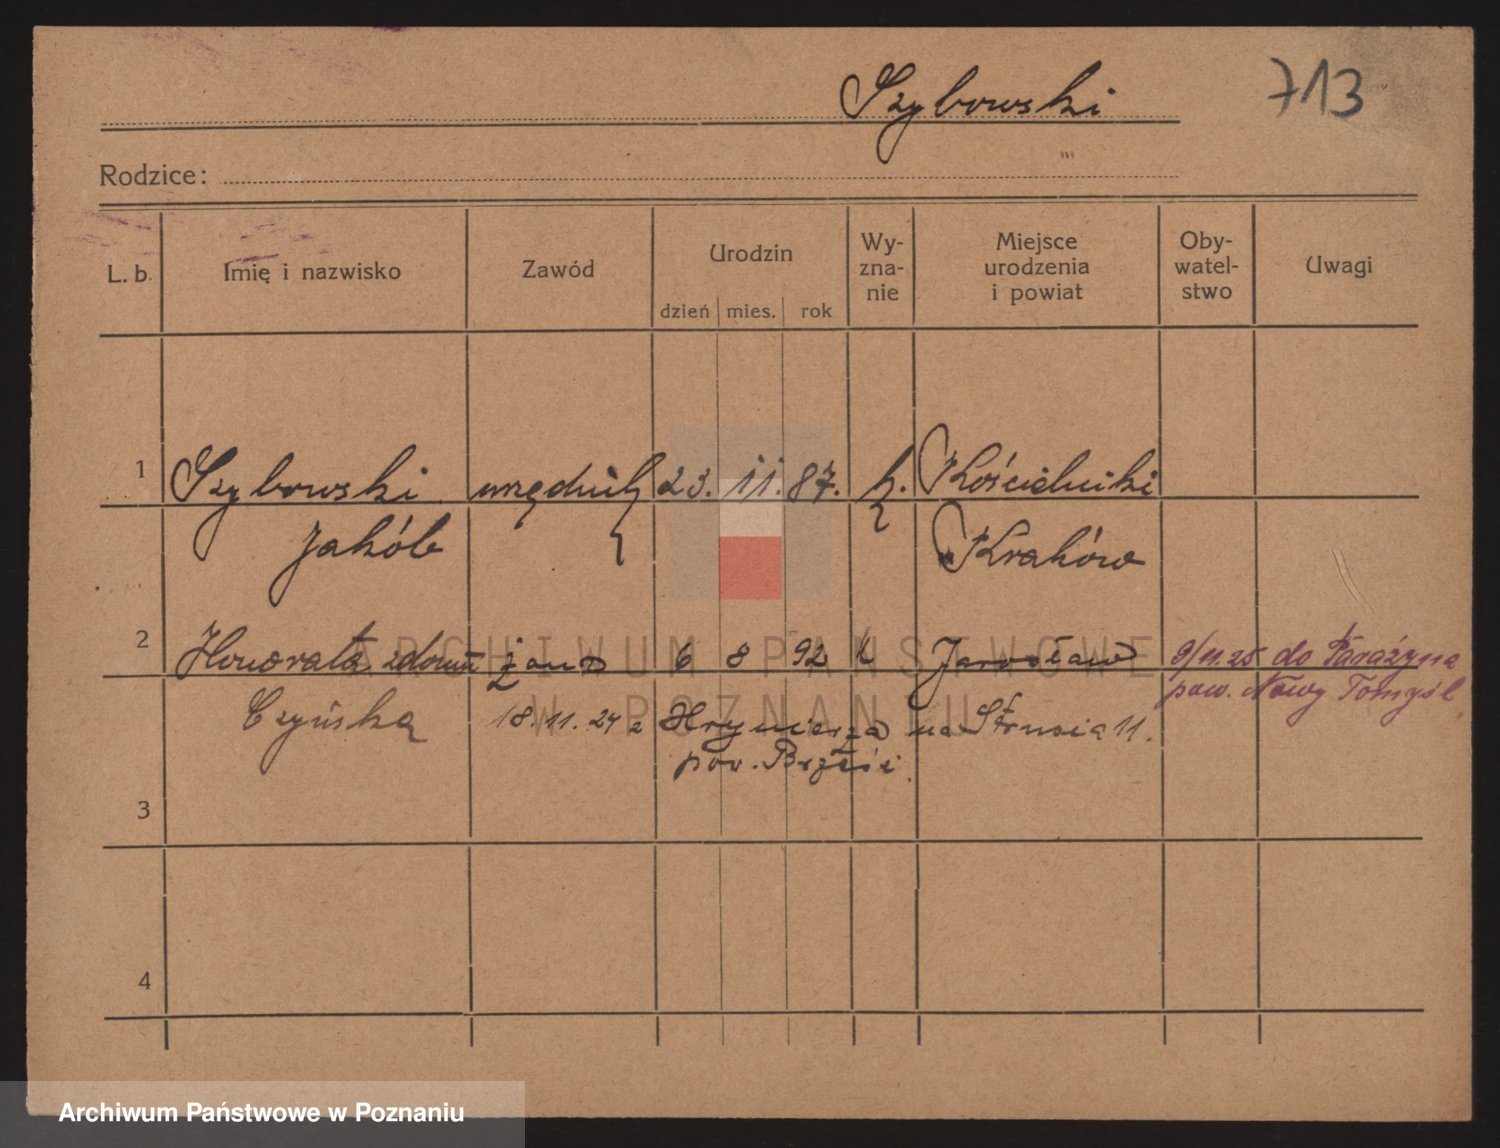 Szybowski 713
Rodzice:
L. b. Imię i nazwisko Zawód Urodzin Wy-zna-nie Miejsce urodzenia i powiat Oby-watel-stwo Uwagi
dzień mies. rok
1 Szybowski urzędnik 23. 11. 87. k. Kościelniki
Jakób Kraków
2 Honorata zdomu żona 6 8 92 k Jarosław 9/11.25 do Parażyna
pow. Nowy Tomyśl
Czyńska 18.11.24 z na Strusia 11.
pow.
3
4
ARCHIWUM PAŃSTWOWE
W POZNANIU
Archiwum Państwowe w Poznaniu